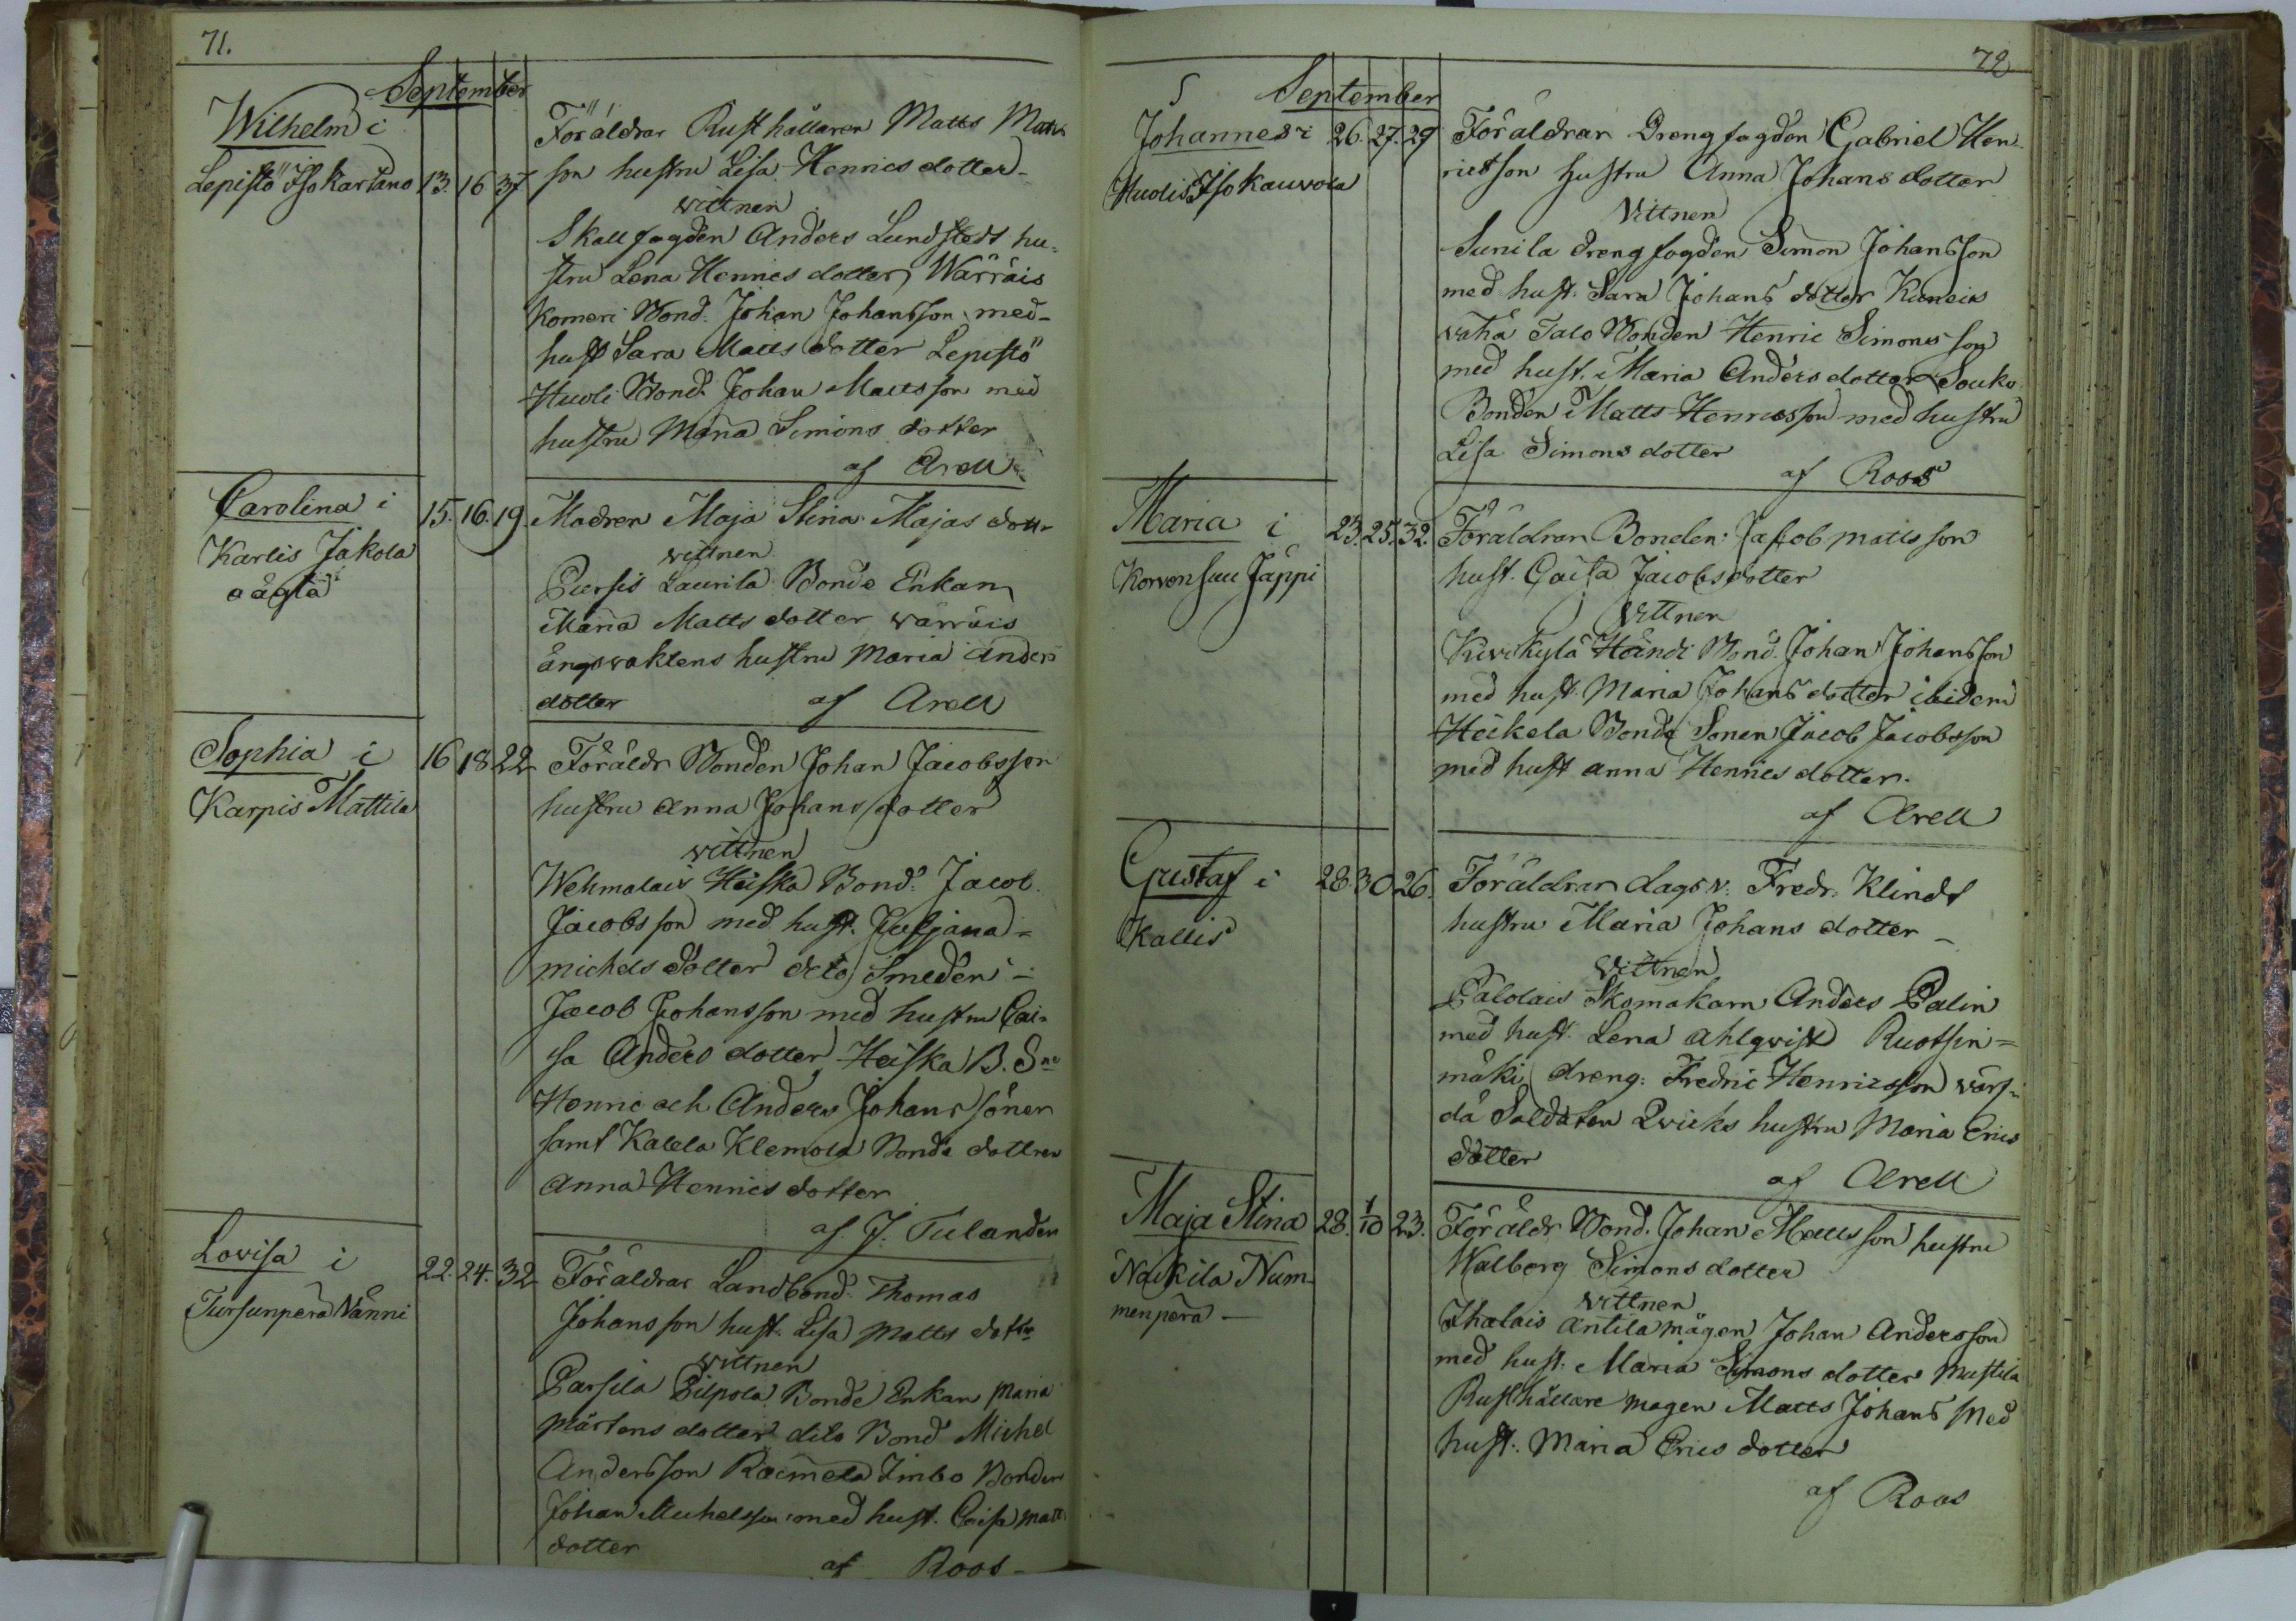 71.
September
Wilhelm i
Lepistö Iso Kartano 13. 16 37
Föräldrar Rusthållaren Matts Matts
son hustru Lisa Henrics dotter
vittnen
Skallfogden Anders Lundstedt hu-
stru Lena Henrics dotter, Wärräis
Komeri Bond. Johan Johansson med
hust Sara Matts dotter Lepistö
Huoli Bond. Johan Mattsson med
hustru Maria Simons dotter
af Arell
Carolina i 15. 16. 19.
Karlis Jakola
oägta
Modren Maja Stina Majas dottr
vittnen
Pursis Laurila Bonde Enkan
Maria Matts dotter wärräis
ängsvaktens hustru Maria Anders
dotter af Arell
Sophia i 16 18 22
Karpis Mattila
Föräldr Bonden Johan Jacobsson
hustru Anna Johans dotter
vittnen
Wehmalais Heiska Bond. Jacob
Jacobsson med hust. Juljana
michels dotter dito Smeden
Jacob Johansson med hustru Cai-
sa Anders dotter Heiska B. Sne
Henric och Anders Johans söner
samt Kalela Klemola Bonde dottren
Anna Henrics dotter
af J. Tulander
Lovisa i 22. 24. 32
Tursunperä Nänni
Föräldrar Landbond. Thomas
Johansson hust. Lisa Matts dottr
vittnen
Parsila Pilpola Bonde Enkan Maria
Mårtens dotter dito Bond Michel
Andersson Raimela Simbo Bonden
Johan Michelsson med hust. Caisa Matts
dotter
af Roos
72
September
Johannes i 26. 27. 29
Huolis Iso Kauvola
Föräldrar Drengfogden Gabriel Hen-
ricsson hustru Anna Johans dotter
Vittnen
Sunila drengfogden Simon Johansson
med hust. Sara Johans dotter
wähä Talo Bonden Henric Simonsson
med hust. Maria Anders dotter Souko
Bonden Matts Henricsson med hustru
Lisa Simons dotter
af Roos
Maria i 23. 25. 32.
Korvensuu Jäppi
Föräldrar Bonden: Jacob Matts son
hust. Caisa Jacobs dotter
Vittnen
Kivikylä Heindi Bond. Johan Johansson
med hust. Maria Johans dotter ibidem
Heikola Bonde Sonen Jacob Jacobsson
med hust anna Henrics dotter.
af Arell
Gustaf i 28. 30 26.
Kallis
Föräldrar dags. v. Fredr. Klindt
hustru Maria Johans dotter
Vittnen
Palolais Skomakarn Anders Palin
med hust. Lena Ahlqvist Ruotsin-
mäki dreng. Fredric Henricsson wärs-
dä Soldaten Qvicks hustru Maria Erics
dotter
af Arell
Maja Stina 28. 1/10 23.
Naikila Num-
menperä
Föräldr Bond. Johan Matts son hustru
Walborg Simons dotter
Vittnen
Ihalais Antila mågen Johan Andersson
med hust. Maria Simons dotter Mustila
Rusthållare mågen Matts Johans med
hust. Maria Erics dotter
af Roos